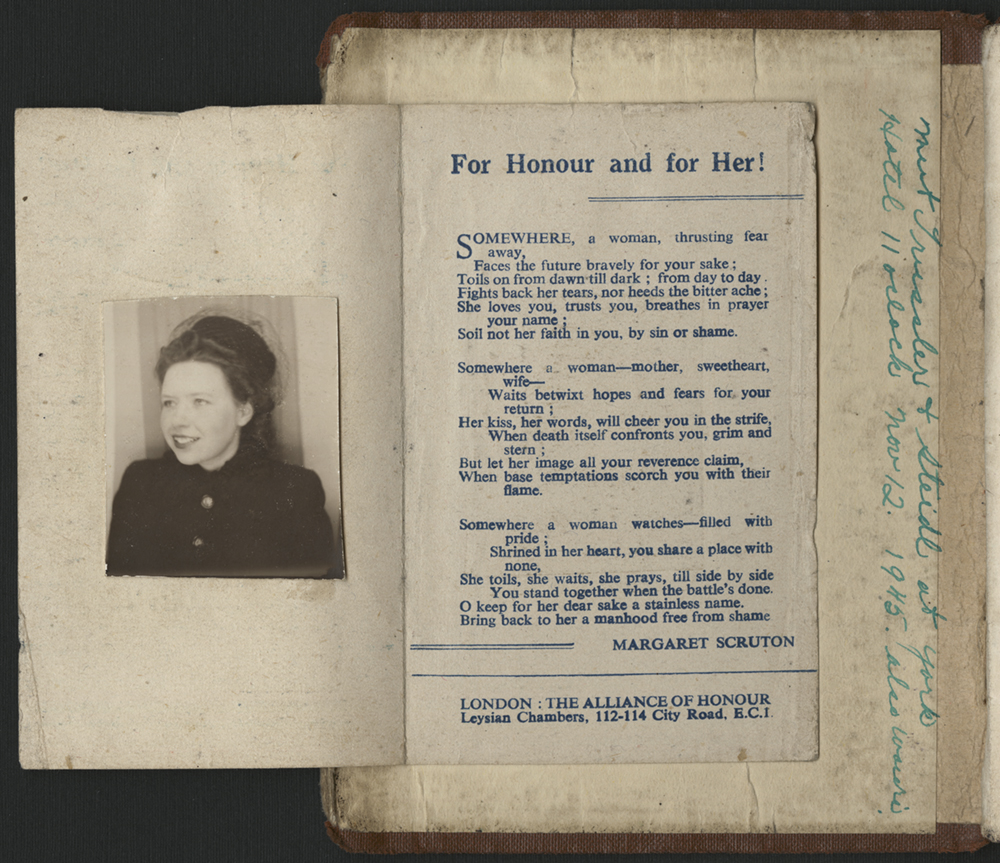 For Honour and for Her!
SOMEWHERE, a woman, thrusting fear
away,
Faces the future bravely for your sake ;
Toils on from dawn till dark ; from day to day
Fights back her tears, nor heeds the bitter ache ;
She loves you, trusts you, breathes in prayer
your name ;
Soil not her faith in you, by sin or shame.
Somewhere a woman—mother, sweetheart,
wife—
Waits betwixt hopes and fears for your
return ;
Her kiss, her words, will cheer you in the strife,
When death itself confronts you, grim and
stern ;
But let her image all your reverence claim,
When base temptations scorch you with their
flame.
Somewhere a woman watches—filled with
pride ;
Shrined in her heart, you share a place with
none,
She toils, she waits, she prays, till side by side
You stand together when the battle's done.
O keep for her dear sake a stainless name.
Bring back to her a manhood free from shame
MARGARET SCRUTON
LONDON : THE ALLIANCE OF HONOUR
Leysian Chambers, 112-114 City Road, E.C.1.
& Steidl at York
Hotel 11 oclock Nov 12. 1945. also